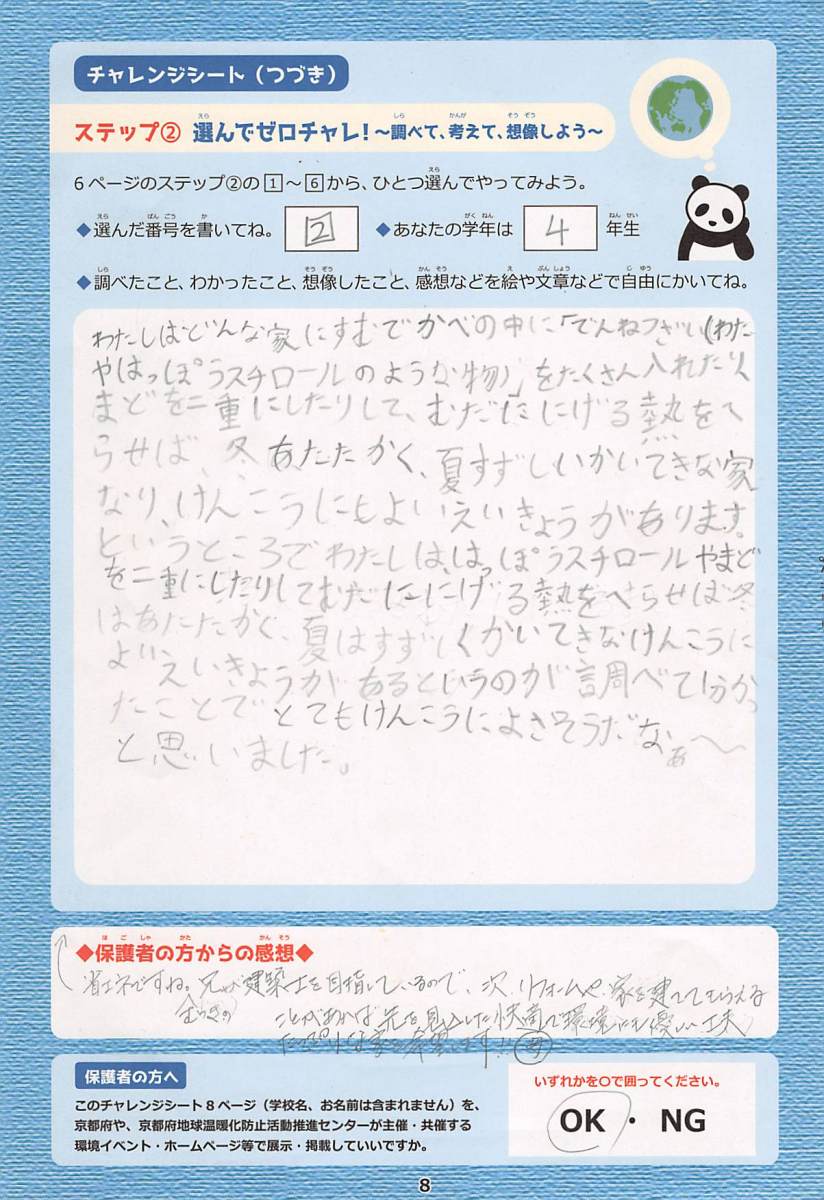 チャレンジシート（つづき）
ステップ② 選んでゼロチャレ！～調べて、考えて、想像しよう～
6ページのステップ②の1～6から、ひとつ選んでやってみよう。
◆選んだ番号を書いてね。 2 ◆あなたの学年は 4 年生
◆調べたこと、わかったこと、想像したこと、感想などを絵や文章などで自由にかいてね。
わたしはどんな家にすむでかべの中に「でんねつざい(わた
やはっぽうスチロールのような物)」をたくさん入れたり、
まどを二重にしたりして、むだににげる熱をへ
らせば、冬あたたかく、夏すずしいかいてきな家
なり、けんこうにもよいえいきょうがあります。
というところでわたしは、はっぽうスチロールやまど
を二重にしたりしてむだににげる熱をへらせば冬
はあたたかく、夏はすずしくかいてきなけんこうに
よい、えいきょうがあるというのが調べて分かっ
たことでとてもけんこうによさそうだなぁ～
と思いました。
◆保護者の方からの感想◆
省エネですね。兄が建築士を目指しているので、次、リフォームや、家を建ててもらえる
ことがあれば先を見越した快適で環境にも優しい工夫
たっぷりな家を希望します!! 母
保護者の方へ
このチャレンジシート8ページ（学校名、お名前は含まれません）を、
京都府や、京都府地球温暖化防止活動推進センターが主催・共催する
環境イベント・ホームページ等で展示・掲載していいですか。
いずれかを○で囲ってください。
OK・NG
8